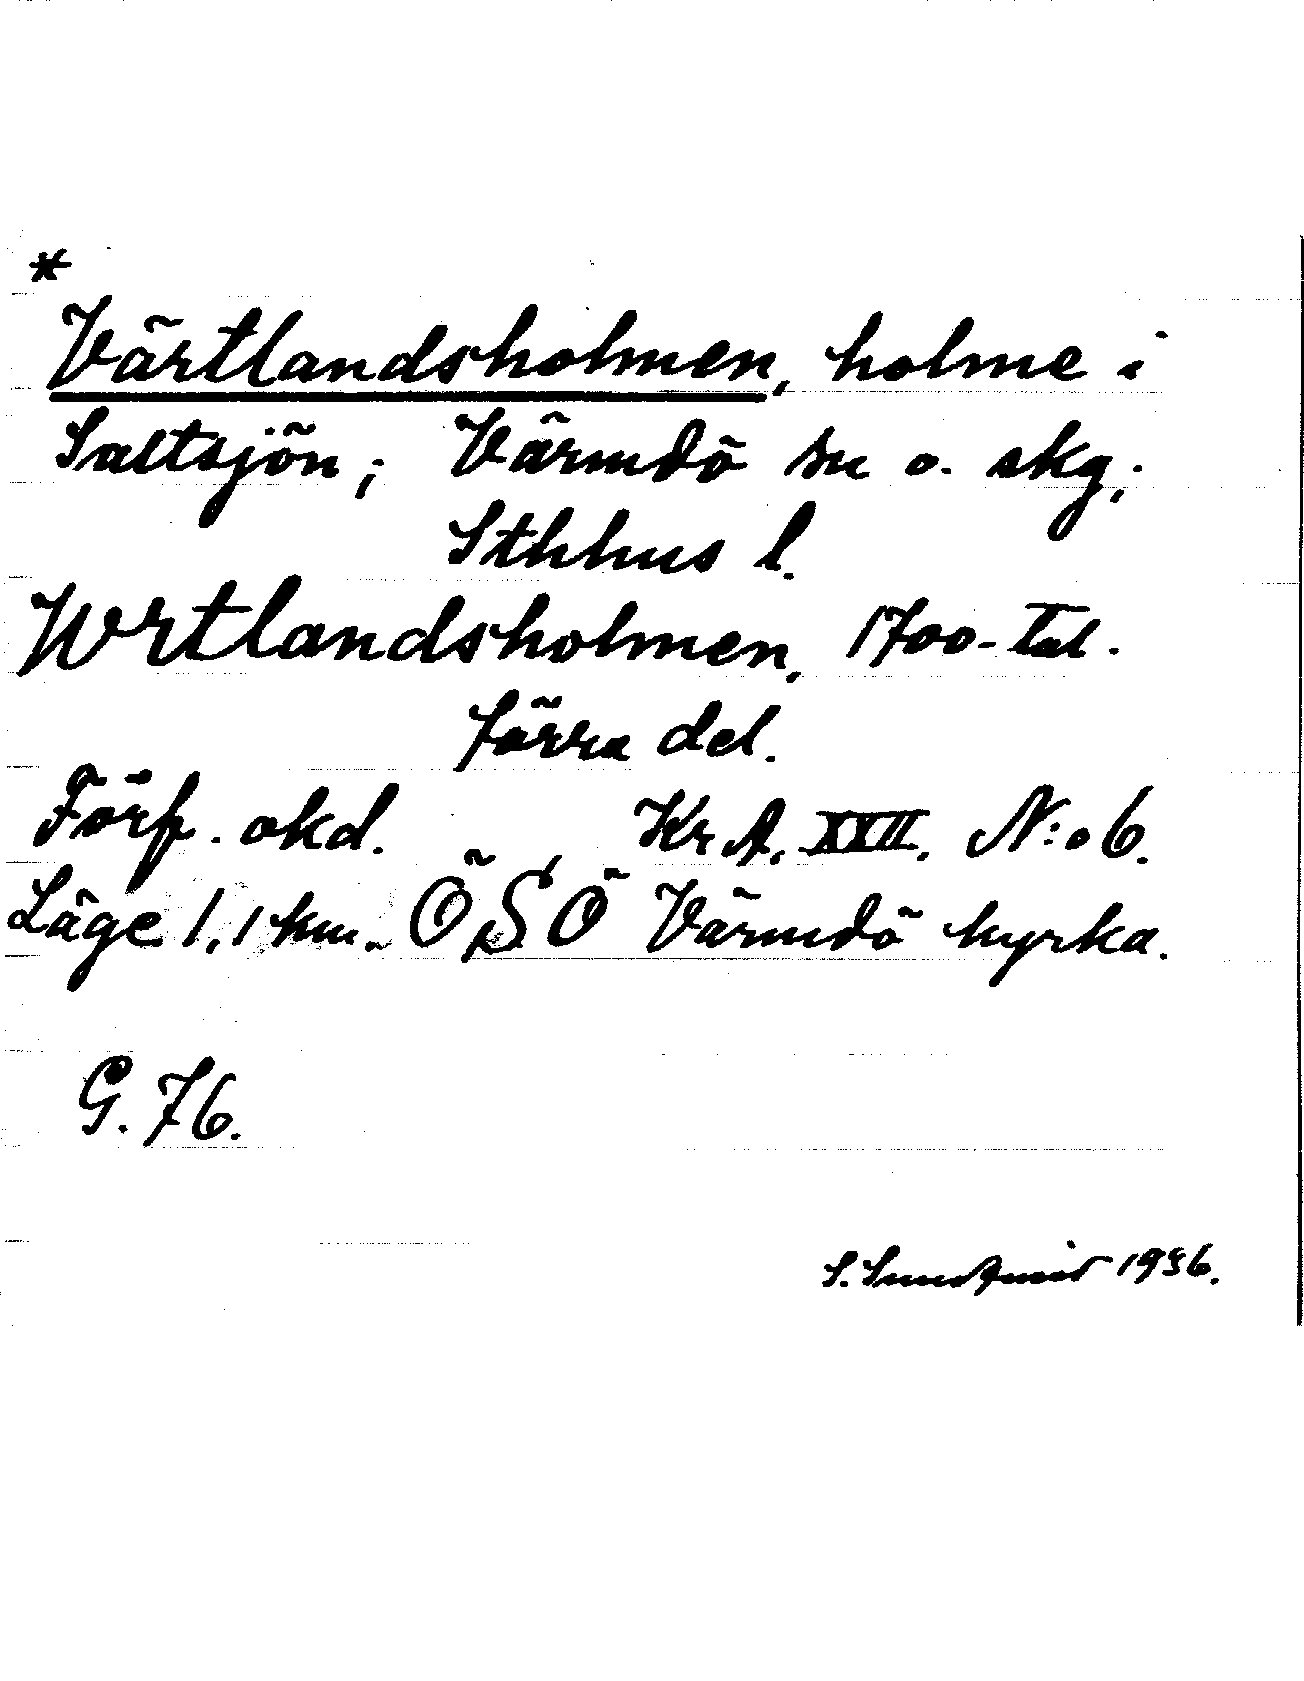 *
Värtlandsholmen, holme i
Saltsjön; Värmdö sn o. skg,.
Sthhus l.
Wrtlandsholmen, 1700-tal.
förra del.
Förf. okd. Kr A. XXII. N:o 6.
Läge 1,1 km. ÖSÖ Värmdö kyrka.
G. 76.
S. 1936.